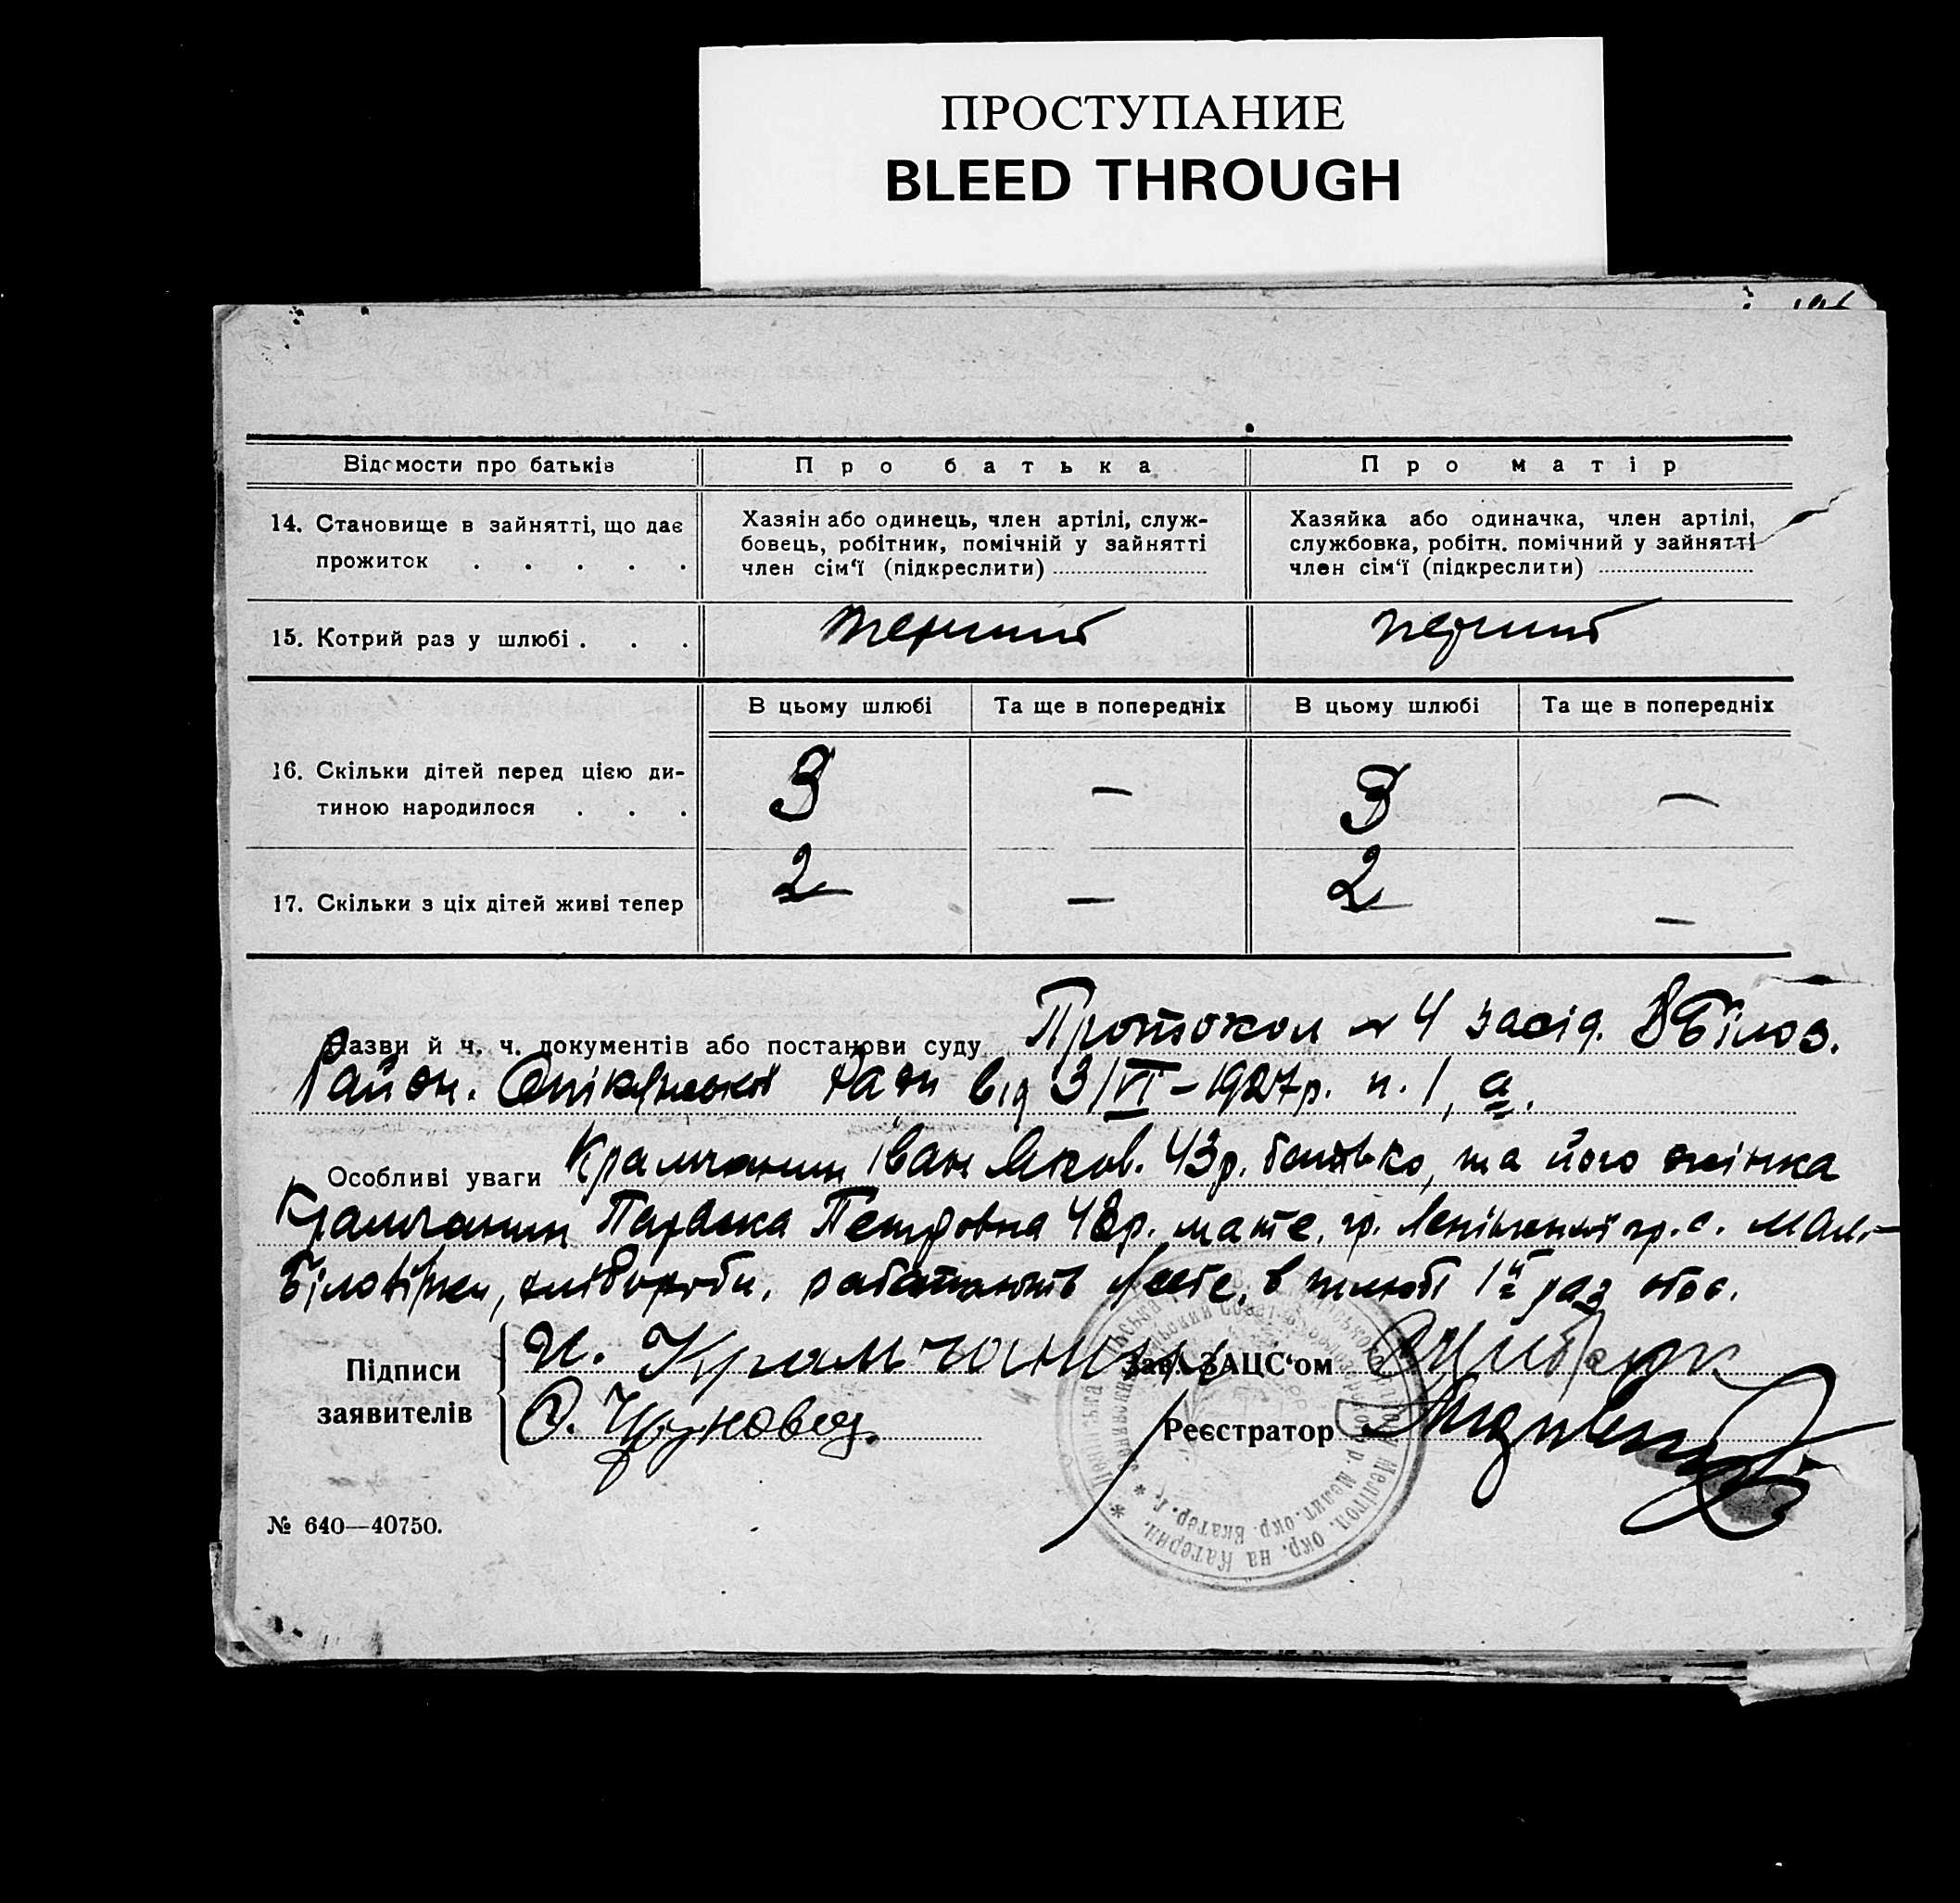 ПРОСТУПАНИЕ
BLEED THROUGH
Відомости про батьків
Про батька
Про матір
14. Становище в зайнятті, що дає
прожиток . . . . .
Хазяін або одинець, член артілі, служ-
бовець, робітник, помічній у зайнятті
член сім‘ї (підкреслити)
Хазяйка або одиначка, член артілі,
службовка, робітн. помічний у зайнятті
член сім‘ї (підкреслити)
15. Котрий раз у шлюбі . . .
перший
перший
В цьому шлюбі
Та ще в попередніх
В цьому шлюбі
Та ще в попередніх
16. Скільки дітей перед цією ди-
тиною народилося . . .
3
—
3
—
17. Скільки з ціх дітей живі тепер
2
—
2
—
Назви й ч. ч. документів або постанови суду Протокол № 4 засід. ВБілоз.
Район. Опікунської Ради від 3/VI-1927р. п. 1, а.
Особливі уваги Крамчанин Іван Яков. 43р. батько, та його жінка
Крамчанин Параска Петровна 48р. мате, гр.
Білозірки, хлібороби, в шлюбі 1й раз обоє.
Підписи
заявителів
И. Крамчанин
Зав. ЗАЦС‘ом
О.
Реєстратор
№ 640—40750.